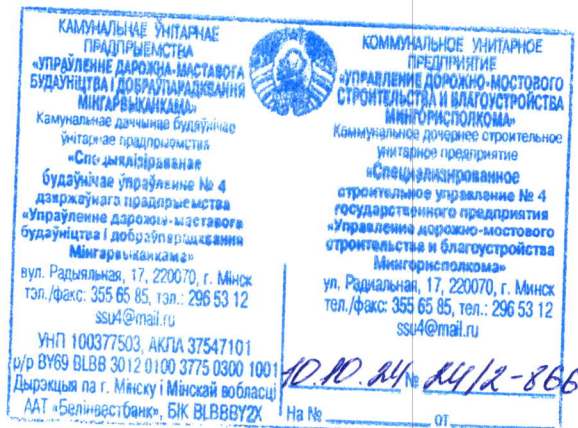 КАМУНАЛЬНАЕ ЎНІТАРНАЕ
ПРАДПРЫЕМСТВА
«УПРАЎЛЕННЕ ДАРОЖНА-МАСТАВОГА
БУДАЎНІЦТВА І ДОБРАЎПАРАДКВАННЯ
МІНГАРВЫКАНКАМА»
Камунальнае даччынае будаўнічае
ўнітарнае прадпрыемства
«Спецыялізіраванае
будаўнічае ўпраўленне № 4
дзяржаўнага прадпрыемства
«Упраўленне дарожна-маставога
будаўніцтва і добраўпарадкавання
Мінгарвыканкама»
вул. Радыяльная, 17, 220070, г. Мінск
тэл./факс: 355 65 85, тэл.: 296 53 12
ssu4@mail.ru
УНП 100377503, АКПА 37547101
р/р BY69 BLBB 3012 0100 3775 0300 1001
Дырэкцыя па г. Мінску і Мінскай вобласці
ААТ «Белінвестбанк», БІК BLBBBY2X
КОММУНАЛЬНОЕ УНИТАРНОЕ
ПРЕДПРИЯТИЕ
«УПРАВЛЕНИЕ ДОРОЖНО-МОСТОВОГО
СТРОИТЕЛЬСТВА И БЛАГОУСТРОЙСТВА
МИНГОРИСПОЛКОМА»
Коммунальное дочернее строительное
унитарное предприятие
«Специализированное
строительное управление № 4
государственного предприятия
«Управление дорожно-мостового
строительства и благоустройства
Мингорисполкома»
ул. Радиальная, 17, 220070, г. Минск
тел./факс: 355 65 85, тел.: 296 53 12
ssu4@mail.ru
10.10.24 № 24/2-866
На № ОТ